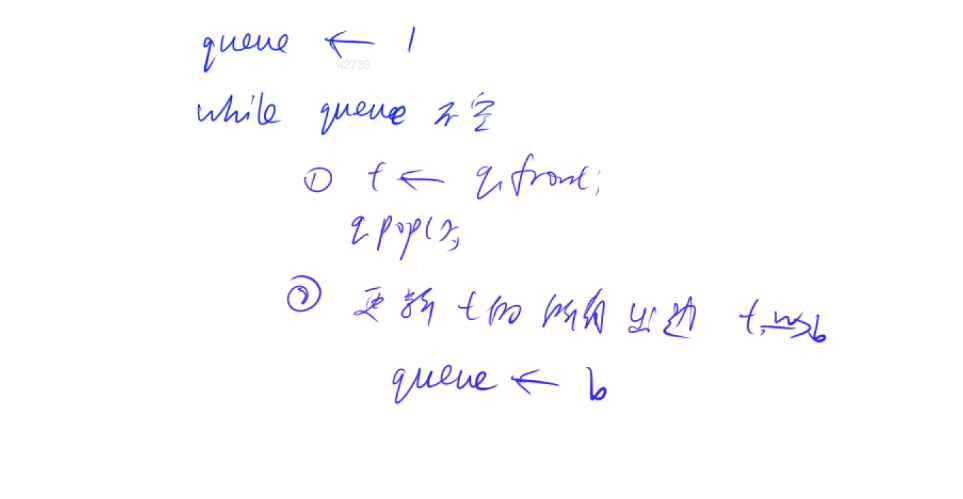 queue ← 1
42739
while queue 不空
① t ← q.front;
q.pop();
② 更新 t的 所有 出边 t -w-> b
queue ← b